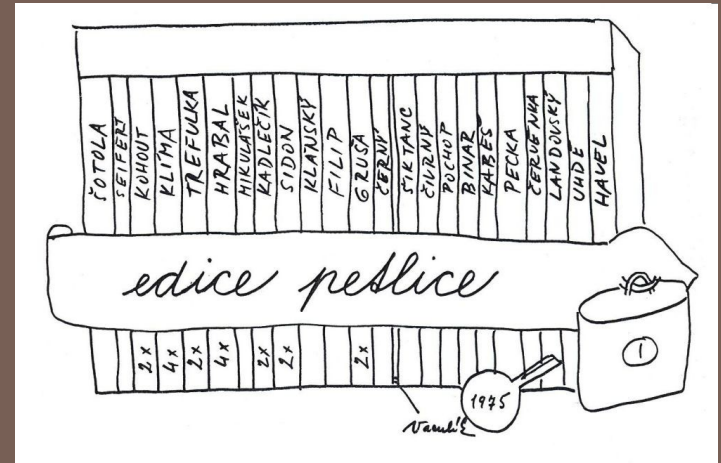 ŠOTOLA
SEIFERT
KOHOUT
KLÍMA
TREFULKA
HRABAL
MIKULÁŠEK
KADLEČÍK
SIDON
KLÁNSKÝ
FILIP
GRUŠA
ČERNÝ
ŠIKTANC
ČIVRNÝ
POCHOP
BINAR
KABEŠ
PECKA
ČERVENKA
LANDOVSKÝ
UHDE
HAVEL
edice petlice
1
2x
4x
2x
4x
2x
2x
2x
1975
Vaculík